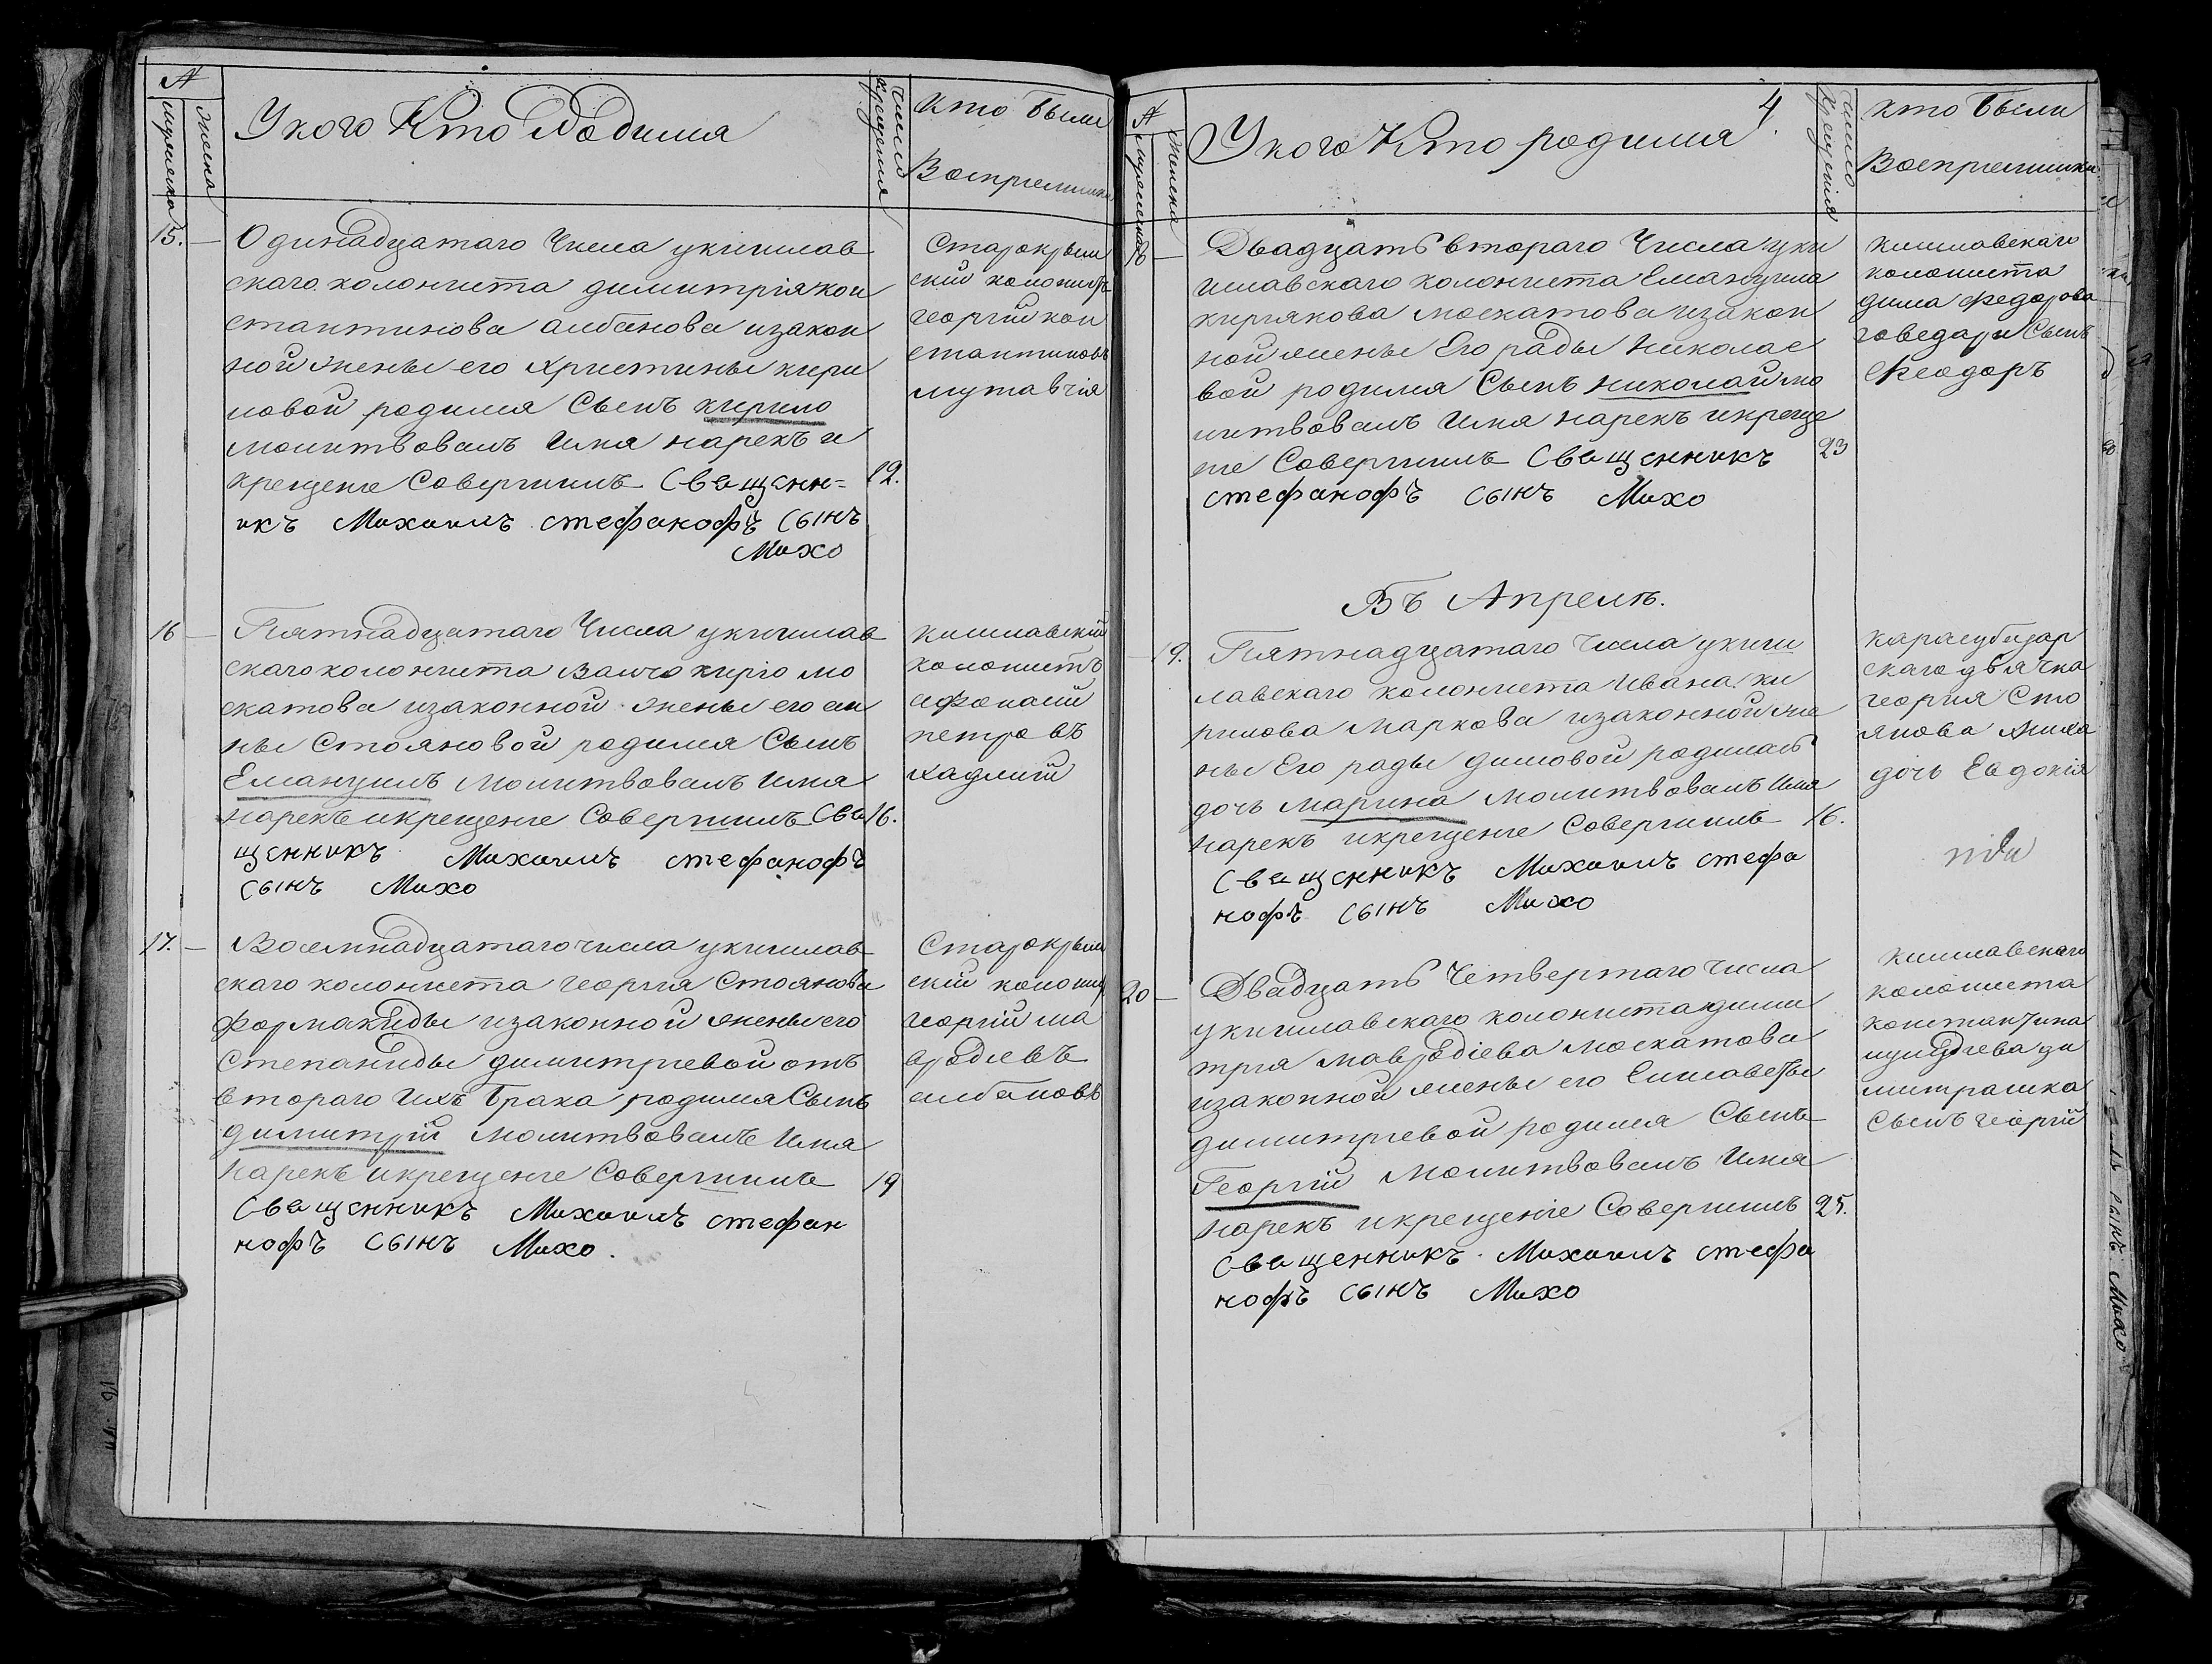 А
мужеска
женска
У кого Кто Родился
число
крещения
Кто были
Восприемники
15. —
Одинадцатаго Числа укишлав
скаго колониста димитрія кон
стантинова албанова изакон
ной жены его Христины кири
ловой родился Сынъ кирило
молитвовалъ Имя нарекъ и
крещение Совершилъ Свещенн=
икъ Михаилъ стефанофъ сынъ
Михо
12.
Старокрым
ский колонистъ
георгий кон
стантиновъ
мутавчія
16 —
Пятнадцатаго Числа укишлав
скаго колониста Валчо киріо мо
скатова изаконной жены его ан
ны Стояновой родился Сынъ
Емануилъ Молитвовалъ Имя
нарекъ икрещение Совершилъ Све
щенникъ Михаилъ стефанофъ
сынъ Михо
16.
кишлавский
колонистъ
афонасий
петровъ
хаджий
17. —
Восемнадцатаго числа укишлав
скаго колониста георгия Стоянова
формакиды изаконной жены его
Степаниды димитриевой отъ
втораго Ихъ Брака родился Сынъ
димитрій молитвовалъ Имя
Нарекъ икрещение Совершилъ
Свещенникъ Михаилъ стефан
нофъ сынъ Михо.
19
Старокрым
ский колонис
георгий ма
вродиевъ
албановъ
4.
А
мужеска
женска
У кого Кто родился
число
крещения
кто были
Восприемники
18 —
Двадцать втораго Числа уки
шлавскаго колониста Емануила
кирякова москатова изакон
ной жены Его рады Николае
вой родился Сынъ николай мо
литвовалъ Имя нарекъ икреще
ние Совершилъ Свещенникъ
стефанофъ сынъ Михо
23
кишлавскаго
колониста
дима федорова
говедари Сынъ
Феодоръ
Въ Апреле.
19.
Пятнадцатаго числа укиш
лавскаго колониста Ивана ки
рилова Маркова изаконной же
ны Его рады димовой родилась
дочь Марина молитвовалъ Имя
нарекъ икрещение Совершилъ
Свещенникъ Михаилъ стефа
нофъ сынъ Михо
16.
карасубазар
скаго дьячка
георгия Сто
янова жила
дочь Евдокія
20 —
Двадцать Четвертаго числа
укишлавскаго колониста дими
трия мавродіева москатова
изаконной жены его Елисаветы
димитриевой родился Сынъ
Георгий Молитвовалъ Имя
нарекъ икрещение Совершилъ
Свещенникъ Михаилъ стефа
нофъ сынъ Михо
25.
кишлавскаго
колониста
константина
ди
митрашка
Сынъ георгій